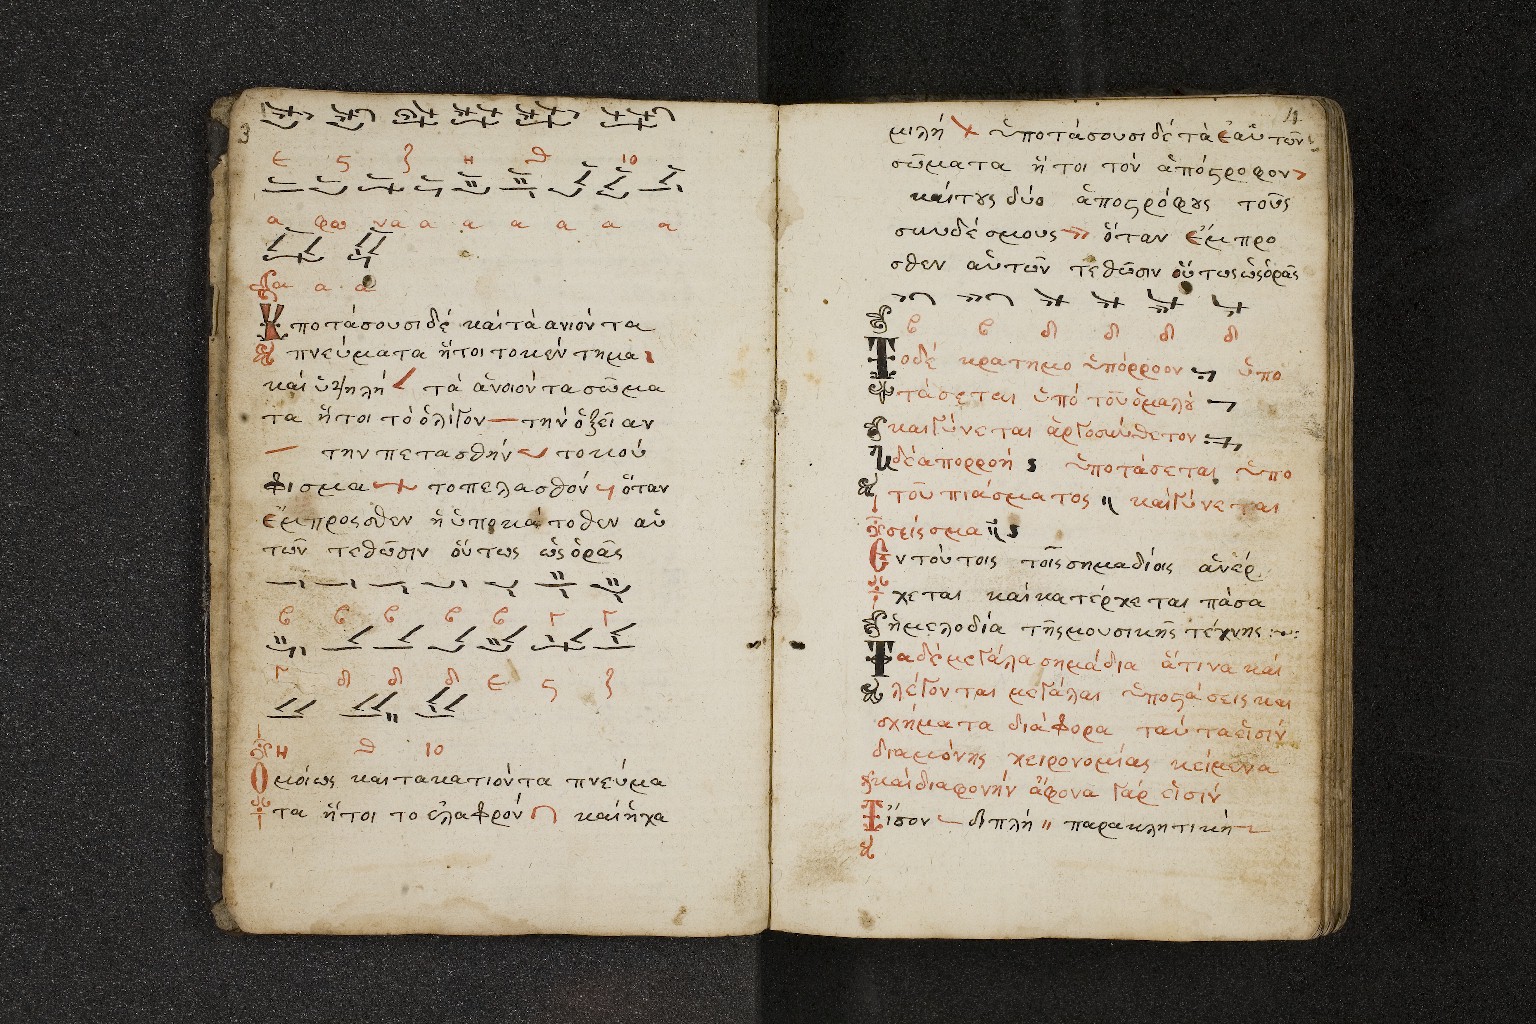 3
ε ς ζ η θ ιο
α φω να α α α α α α
α α α
Ὑποτάσουσι δέ καὶ τὰ ανιόντα
πνεύματα ἤτοι το κέντημα
καὶ ὑψηλή τὰ ἀνοιόντα σῶμα
τα ἤτοι τὸ ὀλίγον την ὀξεῖαν
την πετασθήν το κού
φισμα το πελασθόν ὅταν
ἔμπροσθεν ἢ ὑποκάτοθεν αὐ
τῶν τεθῶσιν οὕτως ὡς ὁρᾶς
β β β β β Γ Γ
Γ δ δ δ ε ς ζ
η θ ιο
Ὁμοίως και τα κατιόντα πνεύμα
τα ἤτοι το ἐλαφρόν καὶ ἡ χα
μιλή ὑποτάσουσι δέ τὰ ἑαὐτῶν
σῶματα ἤτοι τόν ἀπόςροφον
καί τους δύο ἀποςρόφους τοῦς
συνδέσμους ὅταν ἔμπρο
σθεν αὐτῶν τεθῶσιν οὕτως ὡς ὁρᾶς
β β δ δ δ δ
Το δέ κρατημο ὑπόρροον ὑπο
τάσεται ὑπό τοῦ ὁμαλοῦ
καὶ Γύνεται ἀργοσύνθετον
Ἡ δέ απορροή ὑποτάσεται ὑπο
τοῦ πιάσματος καὶ Γύνεται
σείσμα
Ἐν τούτοις τοῖς σημαδίοις ἀνέρ
χεται καὶ κατέρχεται πάσα
ἡ μελοδία τῆς μουσικῆς τέχνης
Τα δέ μεγάλα σημάδια ἅτινα καί
λέγονται μεγάλαι ὑποςάσεις και
σχήματα διάφορα ταύτα εἰσίν
διαμόνης χειρονομίας κείμενα
καί δια φονήν ἄφονα γάρ εἰσίν
Ἴσον διπλή παρακλητική